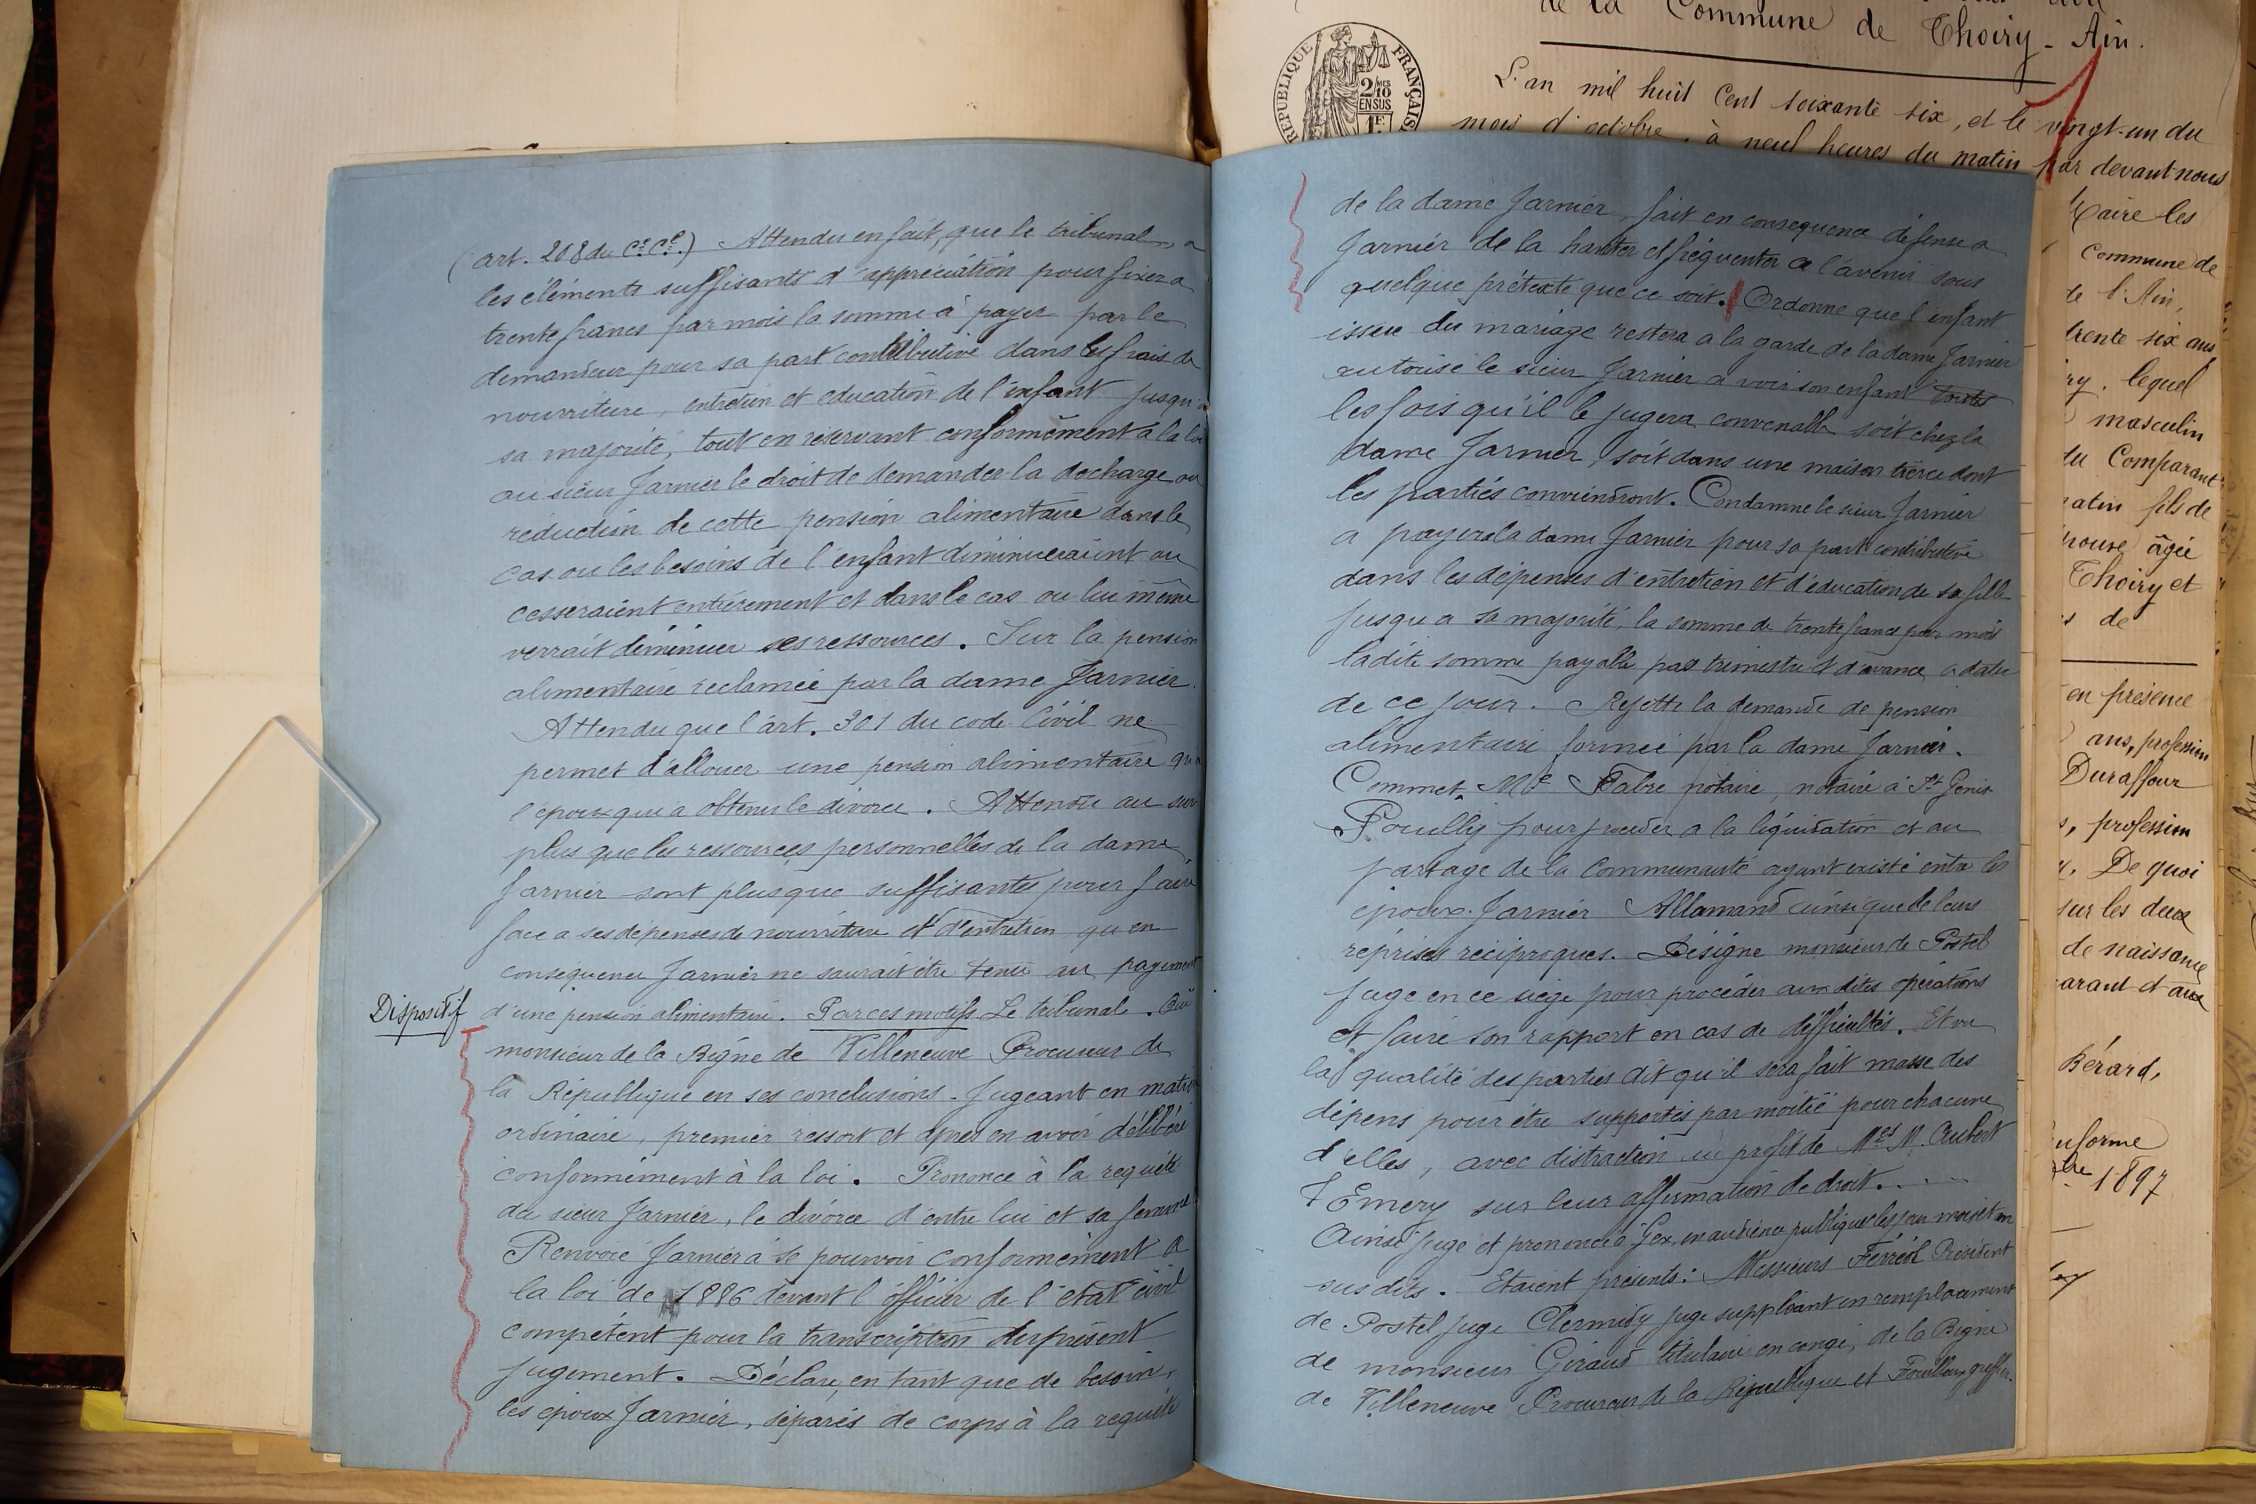 (art. 208 du Ce. Cl.) Attendu en fait, que le tribunal a
les éléments suffisants d'appréciation pour fixer a
trente francs par mois la somme à payer par le
demandeur pour sa part contributive dans les frais de
nourriture, entretien et education de l'enfant jusqu'a
sa majorité, tout en réservant conformément a la loi
au sieur Jarnier le droit de demander la decharge ou
réduction de cette pension alimentaire dans le
cas ou les besoins de l'enfant diminueraient ou
cesseraient entièrement et dans le cas ou lui même
verrait diminuer ses ressources. Sur la pension
alimentaire réclamée par la dame Jarnier.
Attendu que l'art. 301 du code Civil ne
permet d'allouer une pension alimentaire qu'a
l'époux qui a obtenu le divorce. Attendu au sur
plus que les ressources personnelles de la dame
Jarnier sont plus que suffisantes pour faire
face a ses dépenses de nourriture et d'entretien qu'en
consequence Jarnier ne saurait être tenu au payement
Dispositif
d'une pension alimentaire. Par ces motifs Le tribunal. Ouï
monsieur de la Bigne de Villeneuve Procureur de
la République en ses conclusions. Jugeant en matière
ordinaire, premier ressort et après en avoir délibéré
conformément à la loi. Prononce à la requête
du sieur Jarnier, le divorce d'entre lui et sa femme
Renvoie Jarnier à se pourvoir conformément a
la loi de 1886 devant l'officier de l'état civil
compétent pour la transcription du présent
jugement. Déclare, en tant que de besoin,
les époux Jarnier, séparés de corps à la requête
de la dame Jarnier, fait en consequence défense a
Jarnier de la hanter et fréquenter a l'avenir sous
quelque prétexte que ce soit. Ordonne que l'enfant
issue du mariage restera a la garde de la dame Jarnier
autorise le sieur Jarnier a voir son enfant toutes
les fois qu'il le jugera convenable soit chez la
dame Jarnier, soit dans une maison tierce dont
les parties conviendront. Condamne le sieur Jarnier
a payer a la dame Jarnier pour sa part contributive
dans les dépenses d'entretien et d'éducation de sa fille
jusqu'a sa majorité, la somme de trente francs par mois
ladite somme payable par trimestre et d'avance a dater
de ce jour. Rejette la demande de pension
alimentaire formée par la dame Jarnier.
Commet Me Fabre notaire, notaire à St Genis
Pouilly pour proceder a la liquidation et au
partage de la communauté ayant existé entre les
époux Jarnier Allamand ainsi que de leurs
réprises réciproques. Désigne monsieur de Postel
juge en ce siège pour procéder aux dites opérations
et faire son rapport en cas de difficultés. Et vu
la qualité des parties dit qu'il sera fait masse des
dépens pour être supportés par moitié pour chacune
d'elles, avec distraction au profit de Mes M. Aubert
& Emery sur leur affirmation de droit.
Ainsi jugé et prononcé à Gex, en audience publique les jour mois et an
sus dits. Etaient présents: Messieurs Février Président
de Postel juge Clermidy juge suppléant en remplacement
de monsieur Giraud titulaire en congé, de la Bigne
de Villeneuve Procureur de la République et Fouilloux greffier.
de la Commune de Thoiry - Ain.
RÉPUBLIQUE FRANÇAISE
2/10
EN SUS
L'an mil huit cent soixante six, et le vingt-un du
mois d'octobre, à neuf heures du matin par devant nous
Maire les
Commune de
de l'Ain,
trente six ans
lequel
masculin
du Comparant
matin fils de
âgée
Thoiry et
de
en présence
ans, profession
Duraffour
profession
De quoi
sur les deux
de naissance
arant et aux
Bérard,
1897